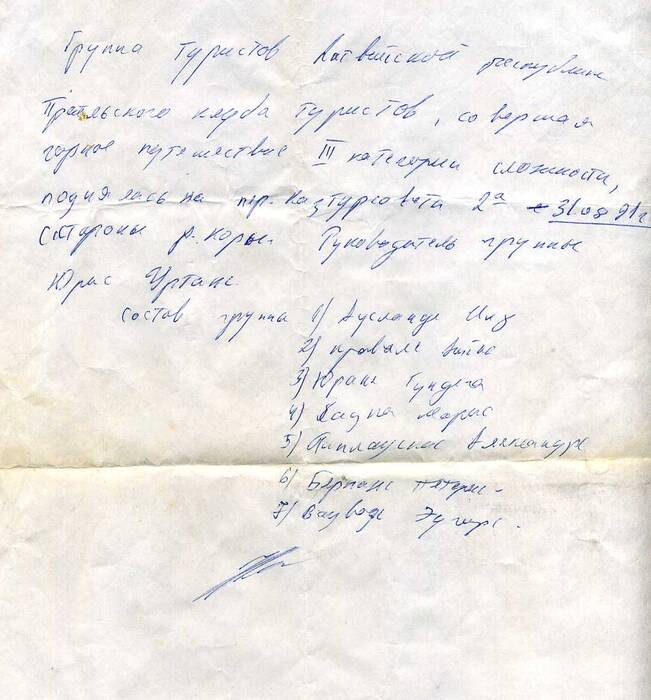 Группа туристов Латвийской республики
клуба туристов, совершая
горное путешествие III категории сложности,
поднялась на пер. Казтурсовета 2а 31.08.91г
со стороны р. Коры. Руководитель группы
Юрис Уртанс
состав группа 1) Аусланде Илз
2)
3) Юране Гундега
4) Марис
5) Александрс
6) Берзанс Петерис.
7) Эугенс.